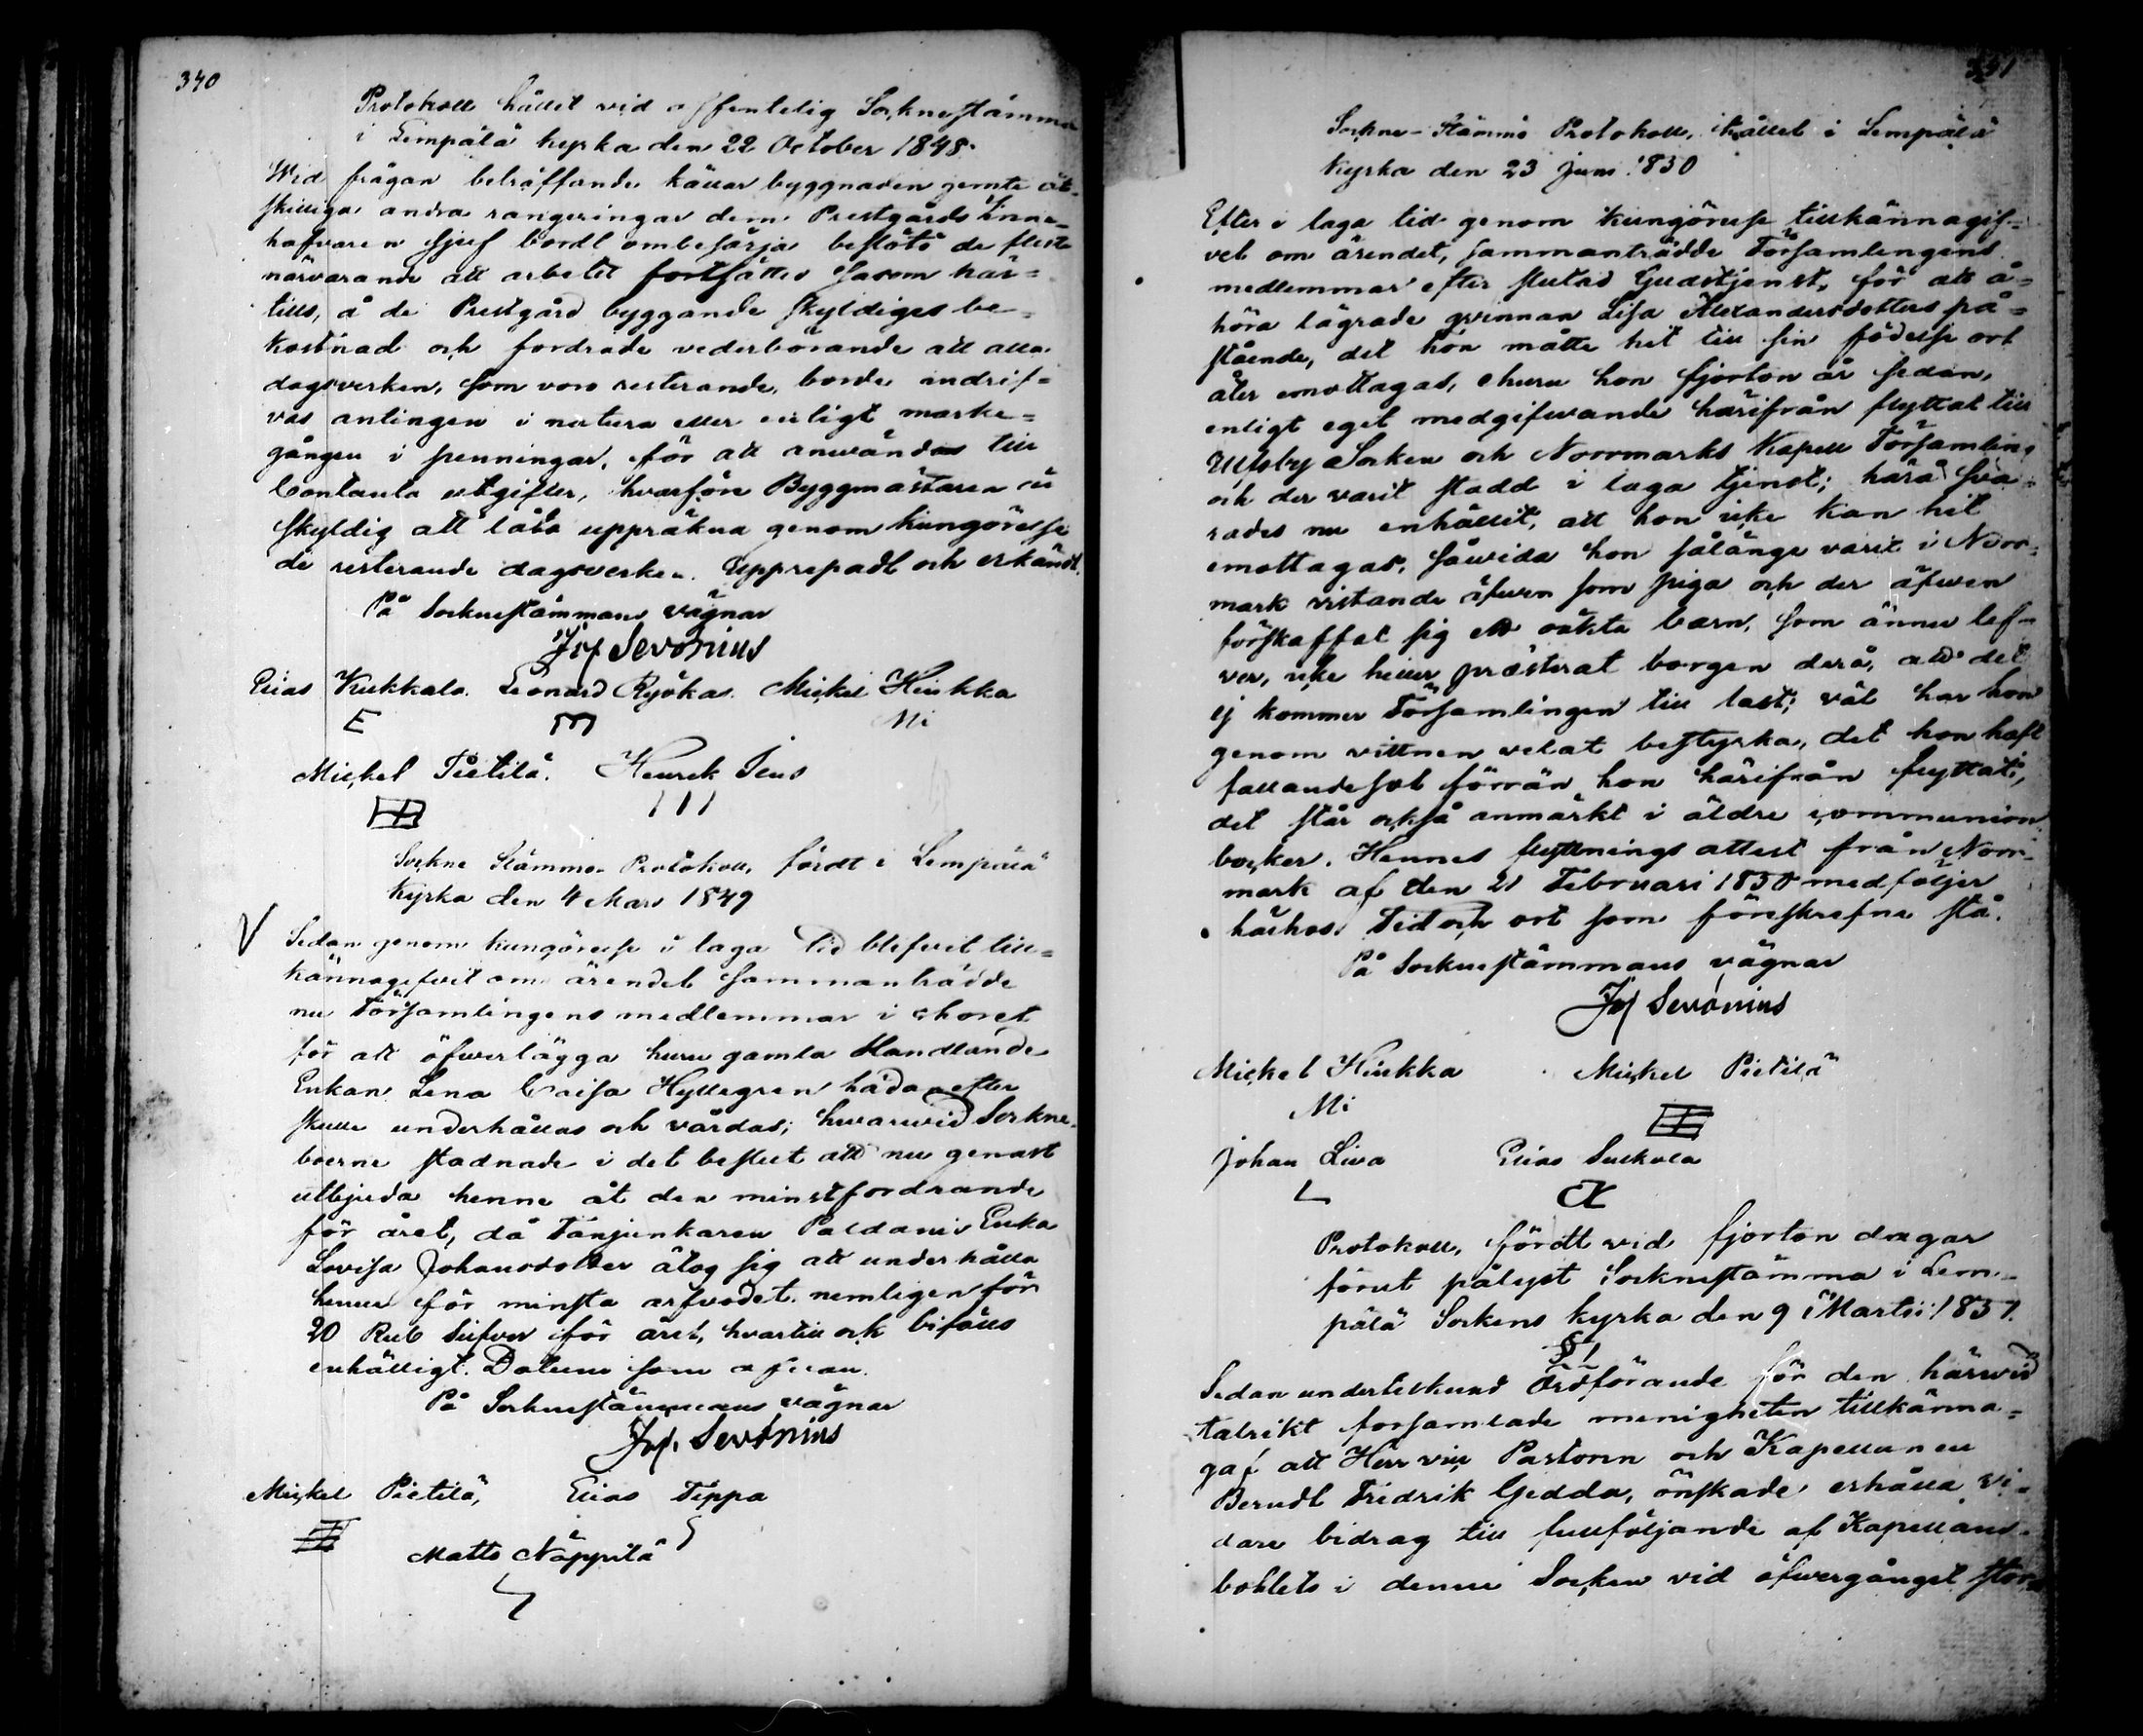 340
Protokoll hållet vid offentelig Sockneståmma
i Lempälä kyrka den 22 October 1848.
Wid frågan beträffande källar byggnaden jemte åt-
skilliga andra rangeringar dem Prestgårds Inne-
hafvaren sjelf bordt ombesörja beslöts de fleste
närvarande att arbetet fortsättes såsom här=
tills, å de Prestgård byggande skyldiges be-
kostnad och fordrade vederbörande att alla
dagsverken, som voro resterande, borde indrif=
vas antingen i natura eller enligt marke=
gången i penningar, för att användas till
Contanta utgifter, hvarföre Byggmästaren är
skyldig att låta uppräkna genom kungörelse
de resterande dagsverken. Upprepadt och erkändt.
På Sockneståmmans vägnar
Jos Sevonius
Elias Kukkala. Leonard Ryökas. Mickel Hiukka
E m Mi
Mickel Pietilä. Henrik Sens
III
Sockne Stämmo Protokoll, fördt i Lempälä
Kyrka den 4 Mars 1849
V Sedan genom kungörelse i laga tid blefvit till=
kännagifvit om ärendet sammanträdde
nu Församlingens medlemmar i choret
för att öfverlägga huru gamla Handlande
Enkan Lena Caisa Hyllegren hädanefter
skulle underhållas och vårdas; hvarwid Sockne-
boerne stadnade i det beslut att nu genast
utbjuda henne åt den minstfordrande
för året, då Fanjunkaren Paldanis Enka
Lovisa Johansdotter åtog sig att underhålla
henne för minsta arfvodet nemligen för
20 Rub Silfver för året, hvartill ock biföлls
enhälligt. Datum som ofvan.
På Sockneståmmans vägnar
Jos. Sevonius
Mickel Pietilä, Elias Teppa
Matts Näppilä
341
Sockne-Stämmo Protokoll, hållet i Lempälä
Kyrka den 23 Juni 1850
Efter i laga tid genom Kungörelse tillkännagif-
vet om ärendet, sammanträdde Församlingens
medlemmar efter slutad Gudstjenst, för att å-
höra lägrade qvinnan Lisa Alexandersdotters på=
stående, det hon måtte hit till sin födelse ort
åter emottagas, ehuru hon fjorton år sedan,
enligt eget medgifwande härifrån flyttat till
Ulfsby Socken och Norrmarks Kapell Församling
och der varit stadd i laga tjenst; härå sva-
rades nu enhälligt, att hon icke kan hit
emottagas, såwida hon sålänge varit i Norr-
mark vistande äfwen som piga och der äfwen
förskaffat sig ett oäkta barn, som ännu lef-
ver, icke heller præsterat borgen derå, att det
ej kommer Församlingen till last; väl har hon
genom vittnen velat bestyrka, det hon haft
fallandesot förrän hon härifrån flyttat,
det står också anmärkt i äldre communion
böcker. Hennes flyttnings attest från Norr-
mark af den 21 Februari 1850 medföljer
härhos. Tid och ort som föreskrefne stå.
På Sockneståmmans vägnar
Jos Sevonius
Mickel Hiukka Mickel Pietilä
Mi
Johan Liva Elias Suckola
L
Protokoll, fördt vid fjorton dagar
förut pålyst Sockneståmma i Lem-
pälä Sockens kyrka den 9 Martii 1851.
§1
Sedan undertecknad Ordförande för den härwid
talrikt församlade menigheten tillkänna=
gaf att Herr vice Pastorn och Kapellanen
Berndt Fridrik Gedda, önskade erhålla vi-
dare bidrag till fullföljande af Kapellans-
bohlets i denne Socken vid öfwergånget stor-